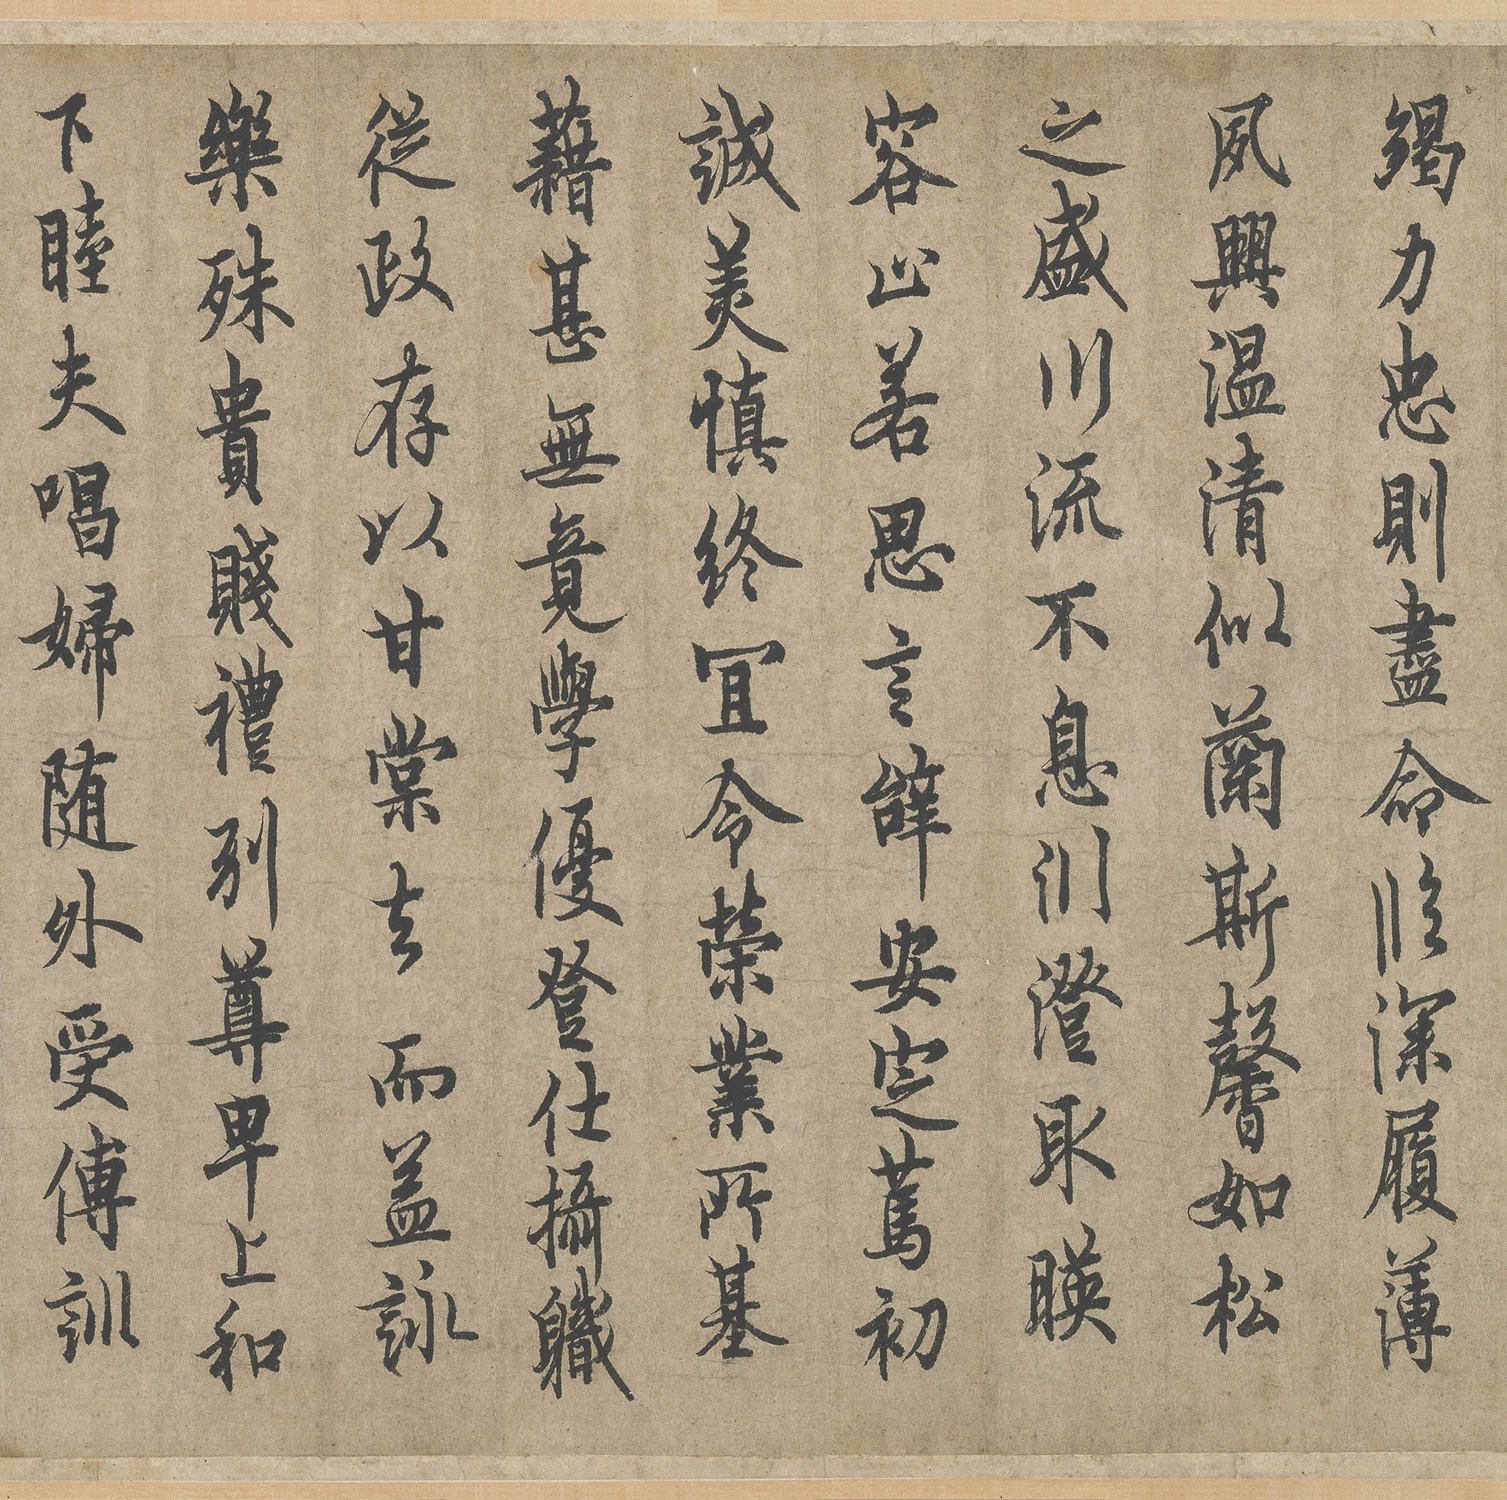 竭力忠則盡命臨深履薄
夙興温清似蘭斯馨如松
之盛川流不息淵澄取暎
容止若思言辭安定篤初
誠美慎終宜令榮業所基
藉甚無竟學優登仕攝職
從政存以甘棠去而益詠
樂殊貴賤禮別尊卑上和
下睦夫唱婦随外受傅訓